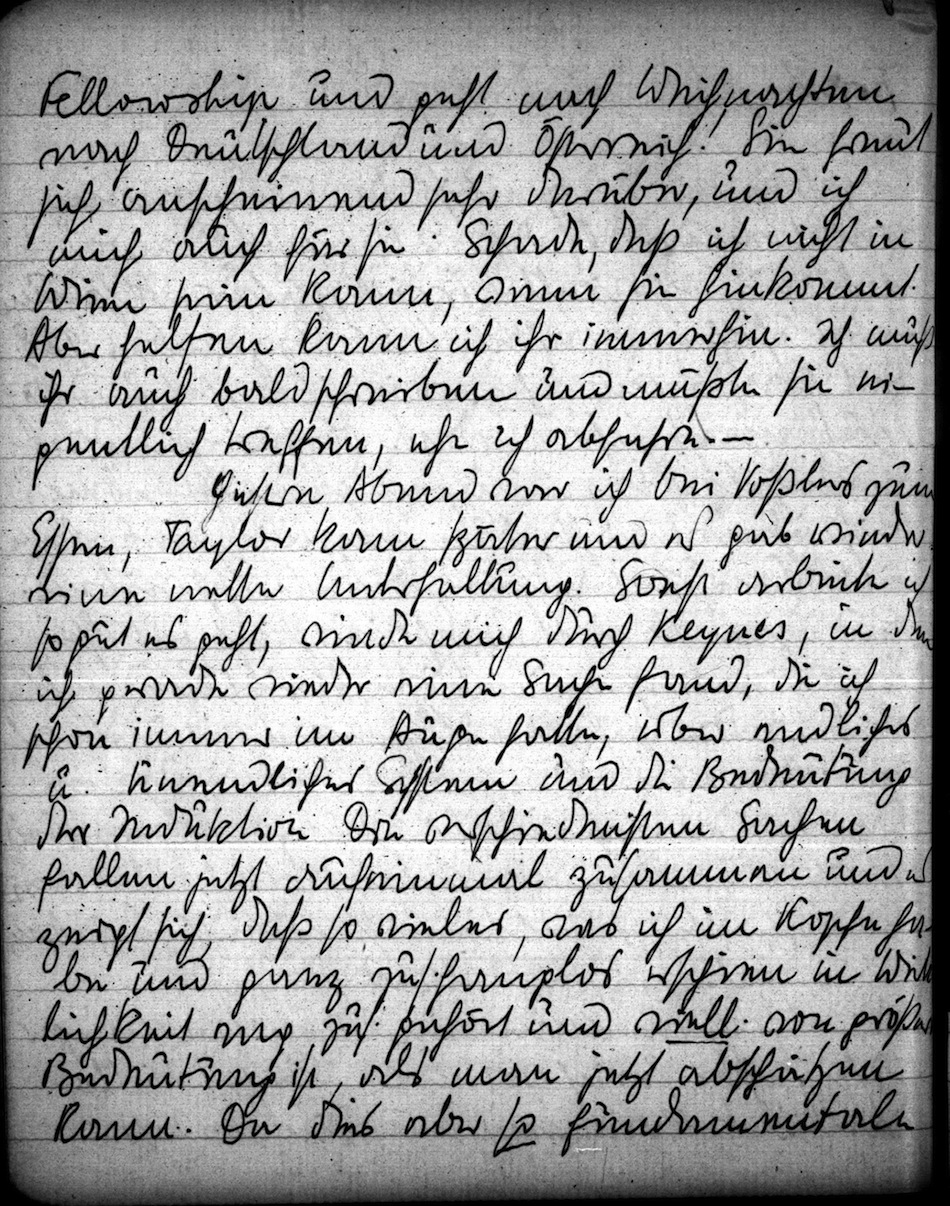 Fellowship und geht nach Weihnachten
nach Deutschland und Österreich. Sie freut
sich anscheinend sehr darüber, und ich
mich auch für sie. Schade, daß ich nicht in
Wien sein kann, wenn sie hinkommt.
Aber helfen kann ich ihr immerhin. Ich muß
ihr auch bald schreiben und müßte sie ei-
gentlich treffen, ehe ich abfahre. —
Gestern Abend war ich bei Voßlers zum
Essen, Taylor kam später und es gab wieder
eine nette Unterhaltung. Sonst arbeite ich
so gut es geht, winde mich durch Keynes, in dem
ich gerade wieder eine Sache fand, die ich
schon immer im Auge hatte, über endliches
u. unendliches System und die Bedeutung
der Induktion. Die verschiedensten Sachen
fallen jetzt auf einmal zusammen und es
zeigt sich, daß so vieles, was ich im Kopfe ha-
be und ganz zus.hanglos erschien in Wirk
lichkeit eng zus. gehört und viell. von größter
Bedeutung ist, als man jetzt abschätzen
kann. Da dies aber so fundamentale